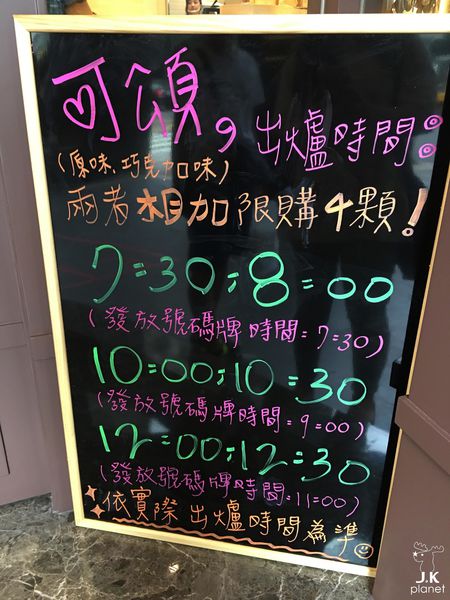 可頌, 出爐時間:
(原味.巧克加味)
兩者相加限購4顆!
7:30;8:00
(發放號碼牌時間:7:30)
10:00;10:30
(發放號碼牌時間:9:00)
12:00;12:30
(發放號碼牌時間:11:00)
依實際出爐時間為準
J.K
planet